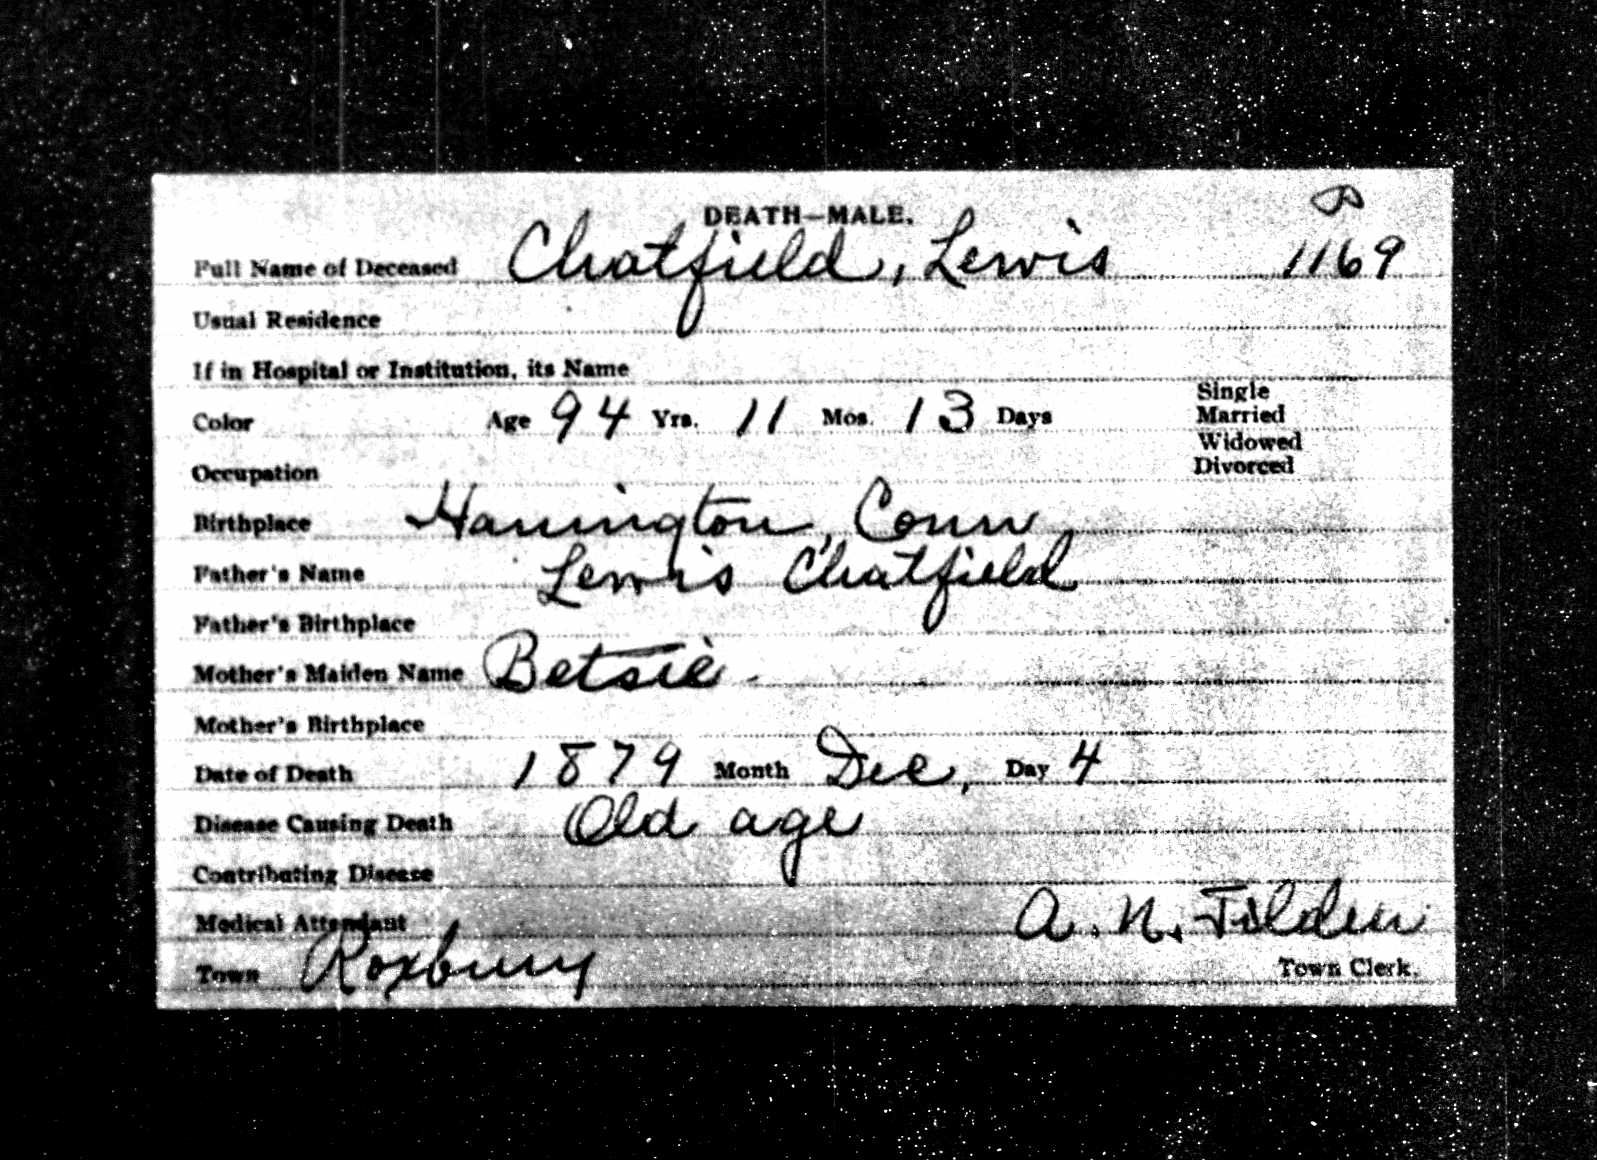 DEATH—MALE.
Full Name of Deceased Chatfield, Lewis 1169
Usual Residence
If in Hospital or Institution, its Name
Color Age 94 Yrs. 11 Mos. 13 Days Single Married Widowed Divorced
Occupation
Birthplace Harrington, Conn
Father's Name Lewis Chatfield
Father's Birthplace
Mother's Maiden Name Betsie
Mother's Birthplace
Date of Death 1879 Month Dec, Day 4
Disease Causing Death Old age
Contributing Disease
Medical Attendant
A. N. Tilden
Town Roxbury Town Clerk.